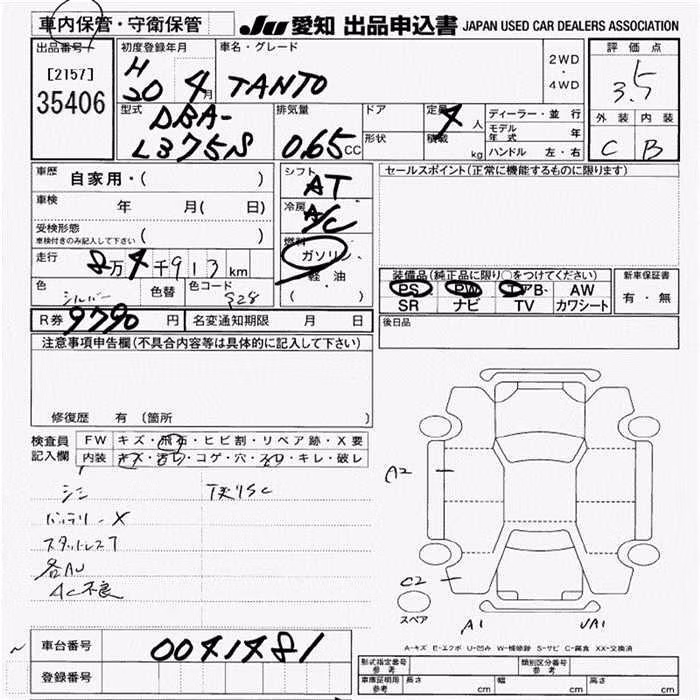 車内保管・守衛保管
JU 愛知 出品申込書 JAPAN USED CAR DEALERS ASSOCIATION
出品番号
[2157]
35406
初度登録年月
H
20 4 月
車名・グレード
TANTO
2WD
・
4WD
評価点
3.5
外装 内装
C B
型式
DBA-
L375S
排気量
065 CC
ドア
形状
定員 4 人
積載 kg
ディーラー・並行
モデル年式 年
ハンドル 左・右
車歴 自家用・( )
車検 年 月( 日)
受検形態
車検付きのみ記入して下さい ( )
走行 8万4千913km
色 シルバー 色替 色コード S28
R券 9790 円 名変通知期限 月 日
シフト
AT
冷房
A/C
燃料
ガソリン
軽油
( )
セールスポイント(正常に機能するものに限ります)
装備品(純正品に限り○をつけてください)
PS PW エアB AW
SR ナビ TV カワシート
新車保証書
有・無
後日品
注意事項申告欄(不具合内容等は具体的に記入して下さい)
修復歴 有 (箇所 )
検査員 記入欄
FW キズ・飛石・ヒビ割・リペア跡・X要
内装 キズ・汚レ・コゲ・穴・スレ・キレ・破レ
バッテリーX
スタッドレス7
AC不良
A2
C2
スペア
A1
A-キズ E-エクボ U-凹み W-補修跡 S-サビ C-腐食 XX-交換済
車台番号 0041481
登録番号
型式指定番号 参考
類別区分番号 参考
車庫証明用 参考 長さ cm 幅 cm 高さ cm